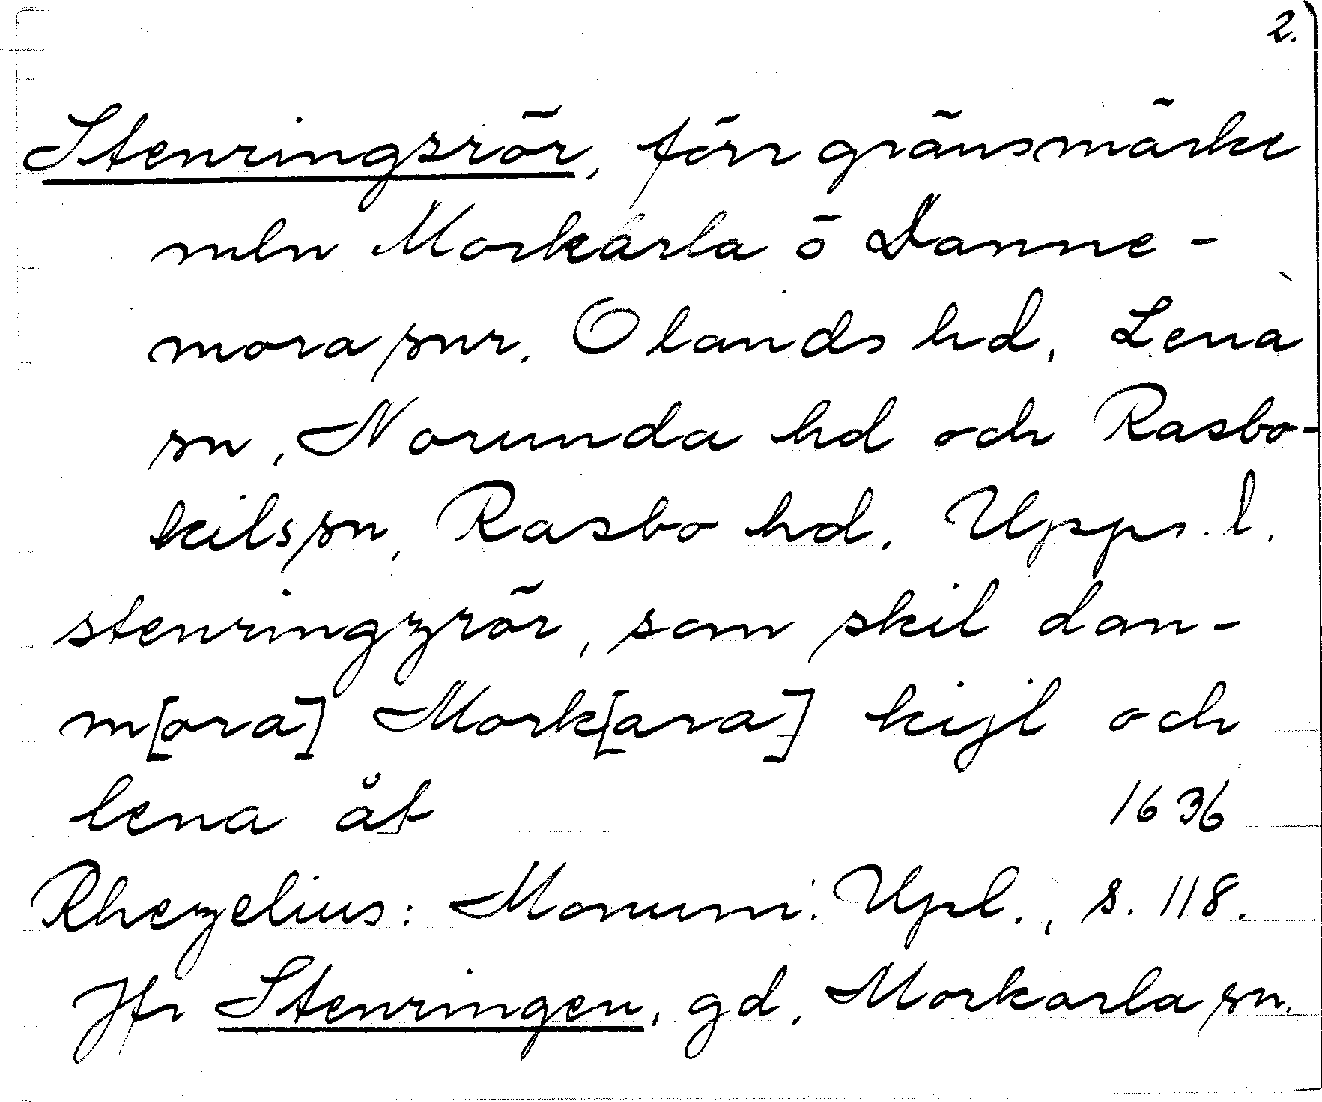 2.
Stenringsrör, förr gränsmärke
mln Morkarla o Danne-
mora snr. Olands hd, Lena
sn, Norunda hd och Rasbo-
kils sn, Rasbo hd. Upps. l.
stenringzrör, som skil dan-
m[ora] Mork[ara] kijl och
lena åt 1636
Rhezelius: Monum. Upl., s. 118.
Jfr Stenringen, gd, Morkarla sn.